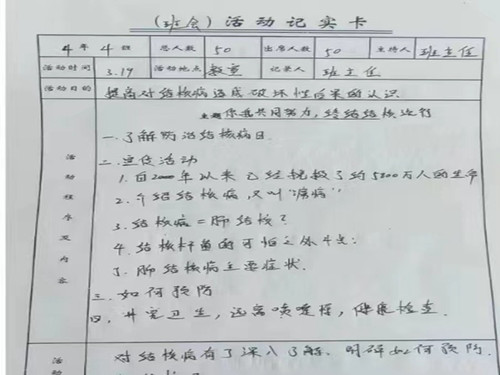 (班会)活动记实卡
4年4班 总人数 50 出席人数 50 主持人 班主任
活动时间 3.19 活动地点 教室 记录人 班主任
活动目的 提高对结核病造成破坏性后果的认识
主题 你我共同努力,终结结核流行
一.了解防治结核病日.
二.宣传活动
1.自2000年以来已经挽救了约5800万人的生命
2.介绍结核病,又叫"痨病"
3.结核病=肺结核?
4.结核杆菌的可怕之处4点:
5.肺结核病主要症状.
三.如何预防
四.讲究卫生,远离喷嚏,健康检查.
活动程序及内容
对结核病有了深入了解.明确如何预防.
活动